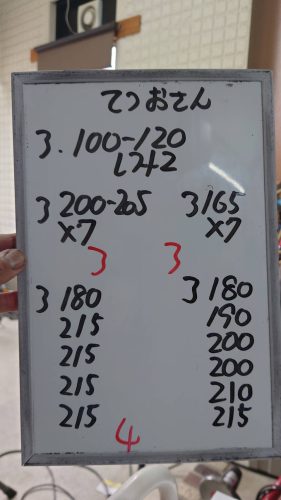 てつおさん
3.100-120
レスト2
3 200-205
×7
3
3 165
×7
3
3 180
215
215
215
215
3 180
190
200
200
210
215
4